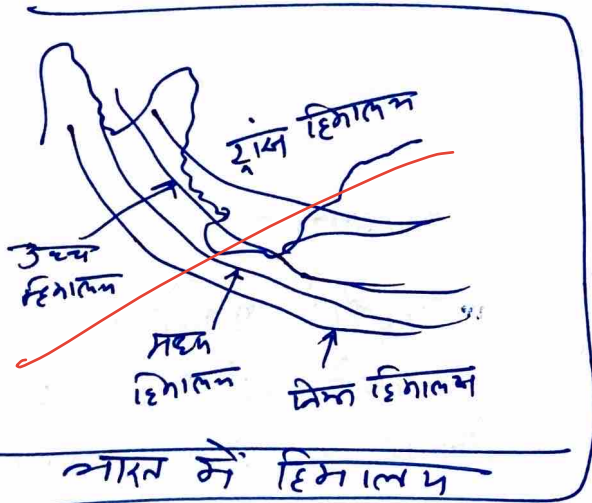 ट्रांस हिमालय
उच्च
हिमालय
मध्य
हिमालय
निम्न हिमालय
भारत में हिमालय